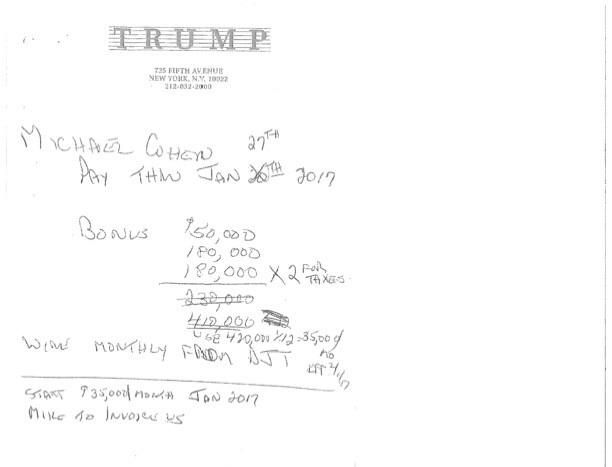 TRUMP
725 FIFTH AVENUE
NEW YORK, N.Y. 10022
212-832-2000
MICHAEL COHEN 27TH
PAY THRU JAN 26TH 2017
BONUS $50,000
180,000
180,000 X 2 FOR TAXES
230,000
410,000
USE 420,000 1/12 = 35,000/
MO
WIRE MONTHLY FROM DJT
EFF 2/1/17
START $35,000/MONTH JAN 2017
MIKE TO INVOICE US